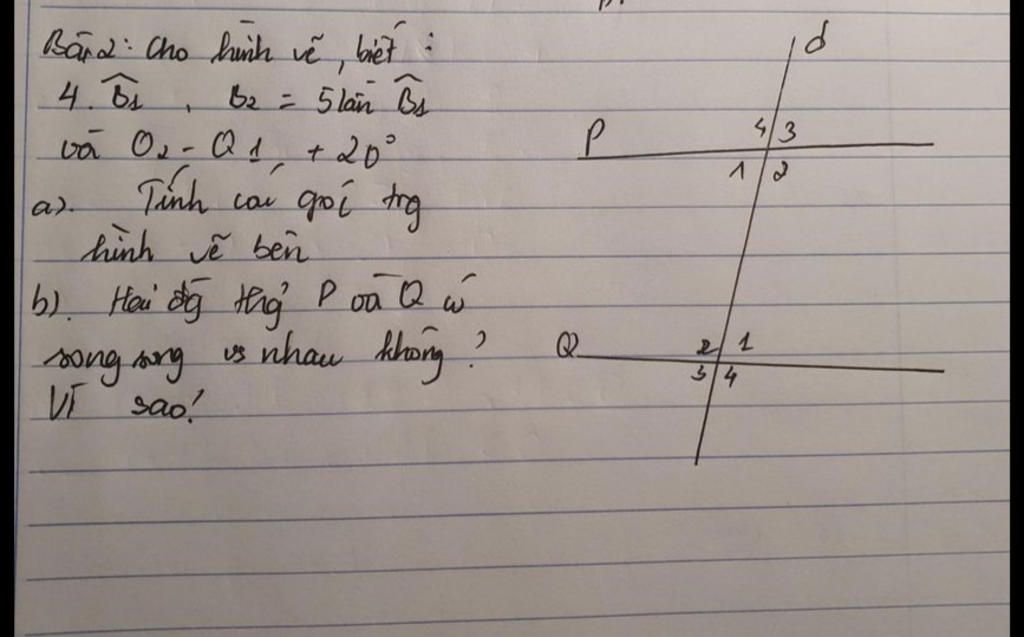 Bài 2: Cho hình vẽ, biết:
4. B̂1 , B2 = 5 lần B̂1
và O2 - Q1, + 20°
a). Tính các góc trg
hình vẽ bên
b). Hai đg thg̉ P và Q có
song song vs nhau không?
Vì sao!
d
P
4 3
1 2
Q
2 1
3 4